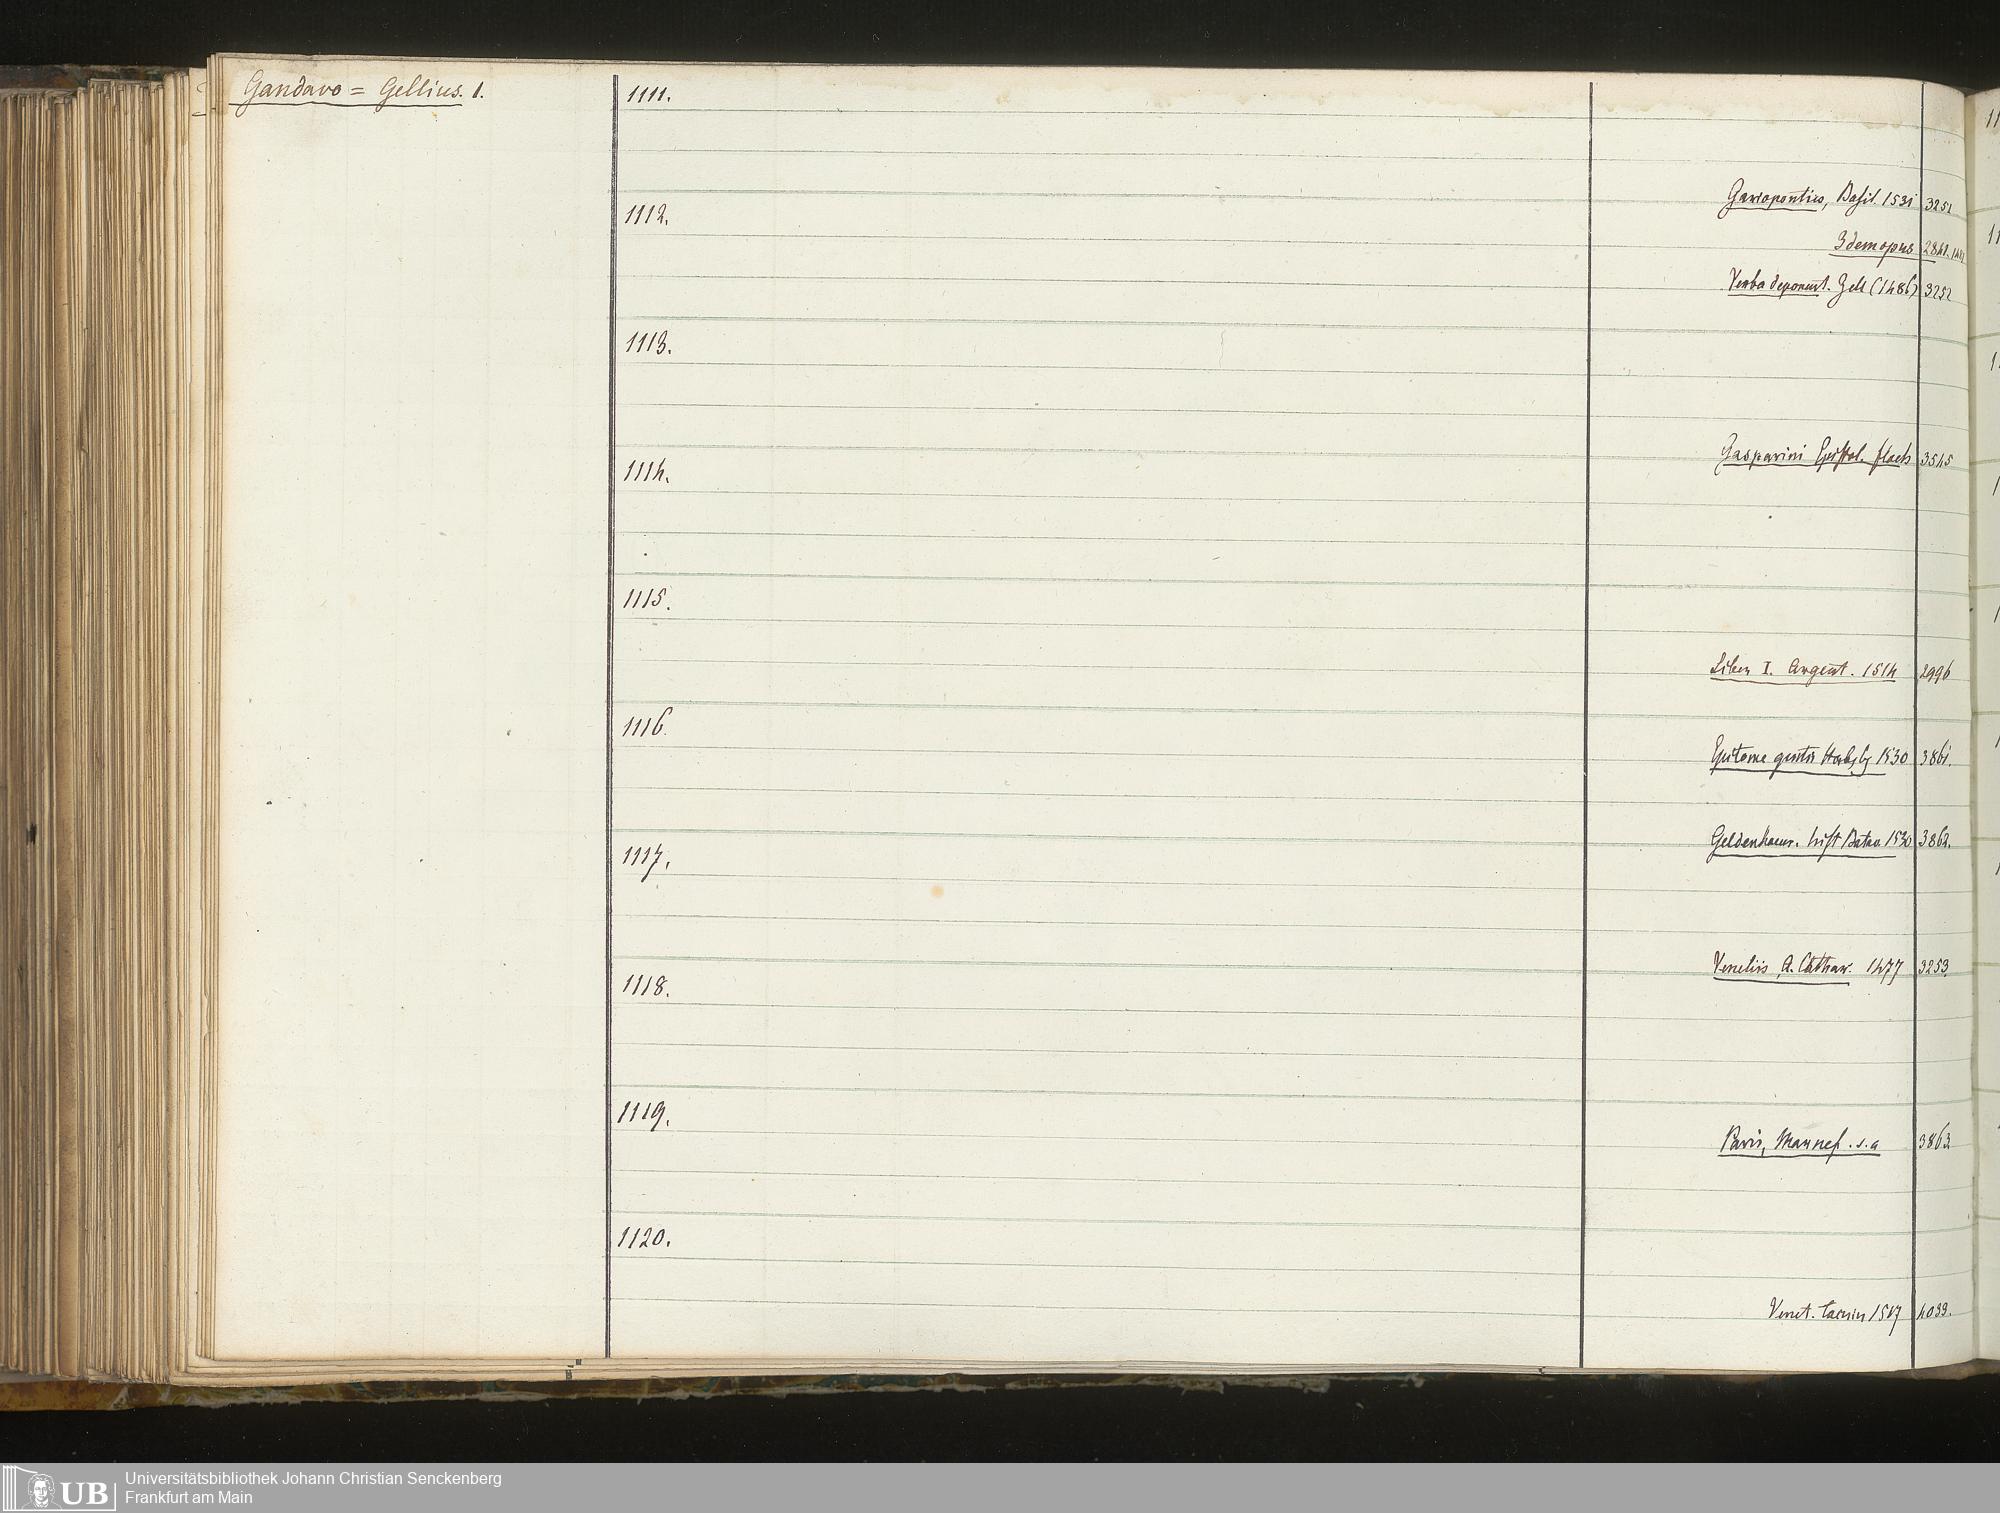 Gandavo = Gellius. 1.
1111.
Gariopontus, Basil. 1531 3251
1112.
Idem opus 2841.
Verba deponent. Zell (1486) 3252
1113.
Gasparini Epistol. flach 3545
1114.
1115.
Liber I. Argent. 1514 2996
1116.
Epitome gentis Habsbg 1530 3861.
Geldenhaur. hist Batav. 1530 3862.
1117.
Venetiis A. Cathar. 1477 3253.
1118.
1119.
Paris, Marnef. s. a 3863
1120.
Venet. Tacuin 1517 4033.
Universitätsbibliothek Johann Christian Senckenberg
Frankfurt am Main
UB